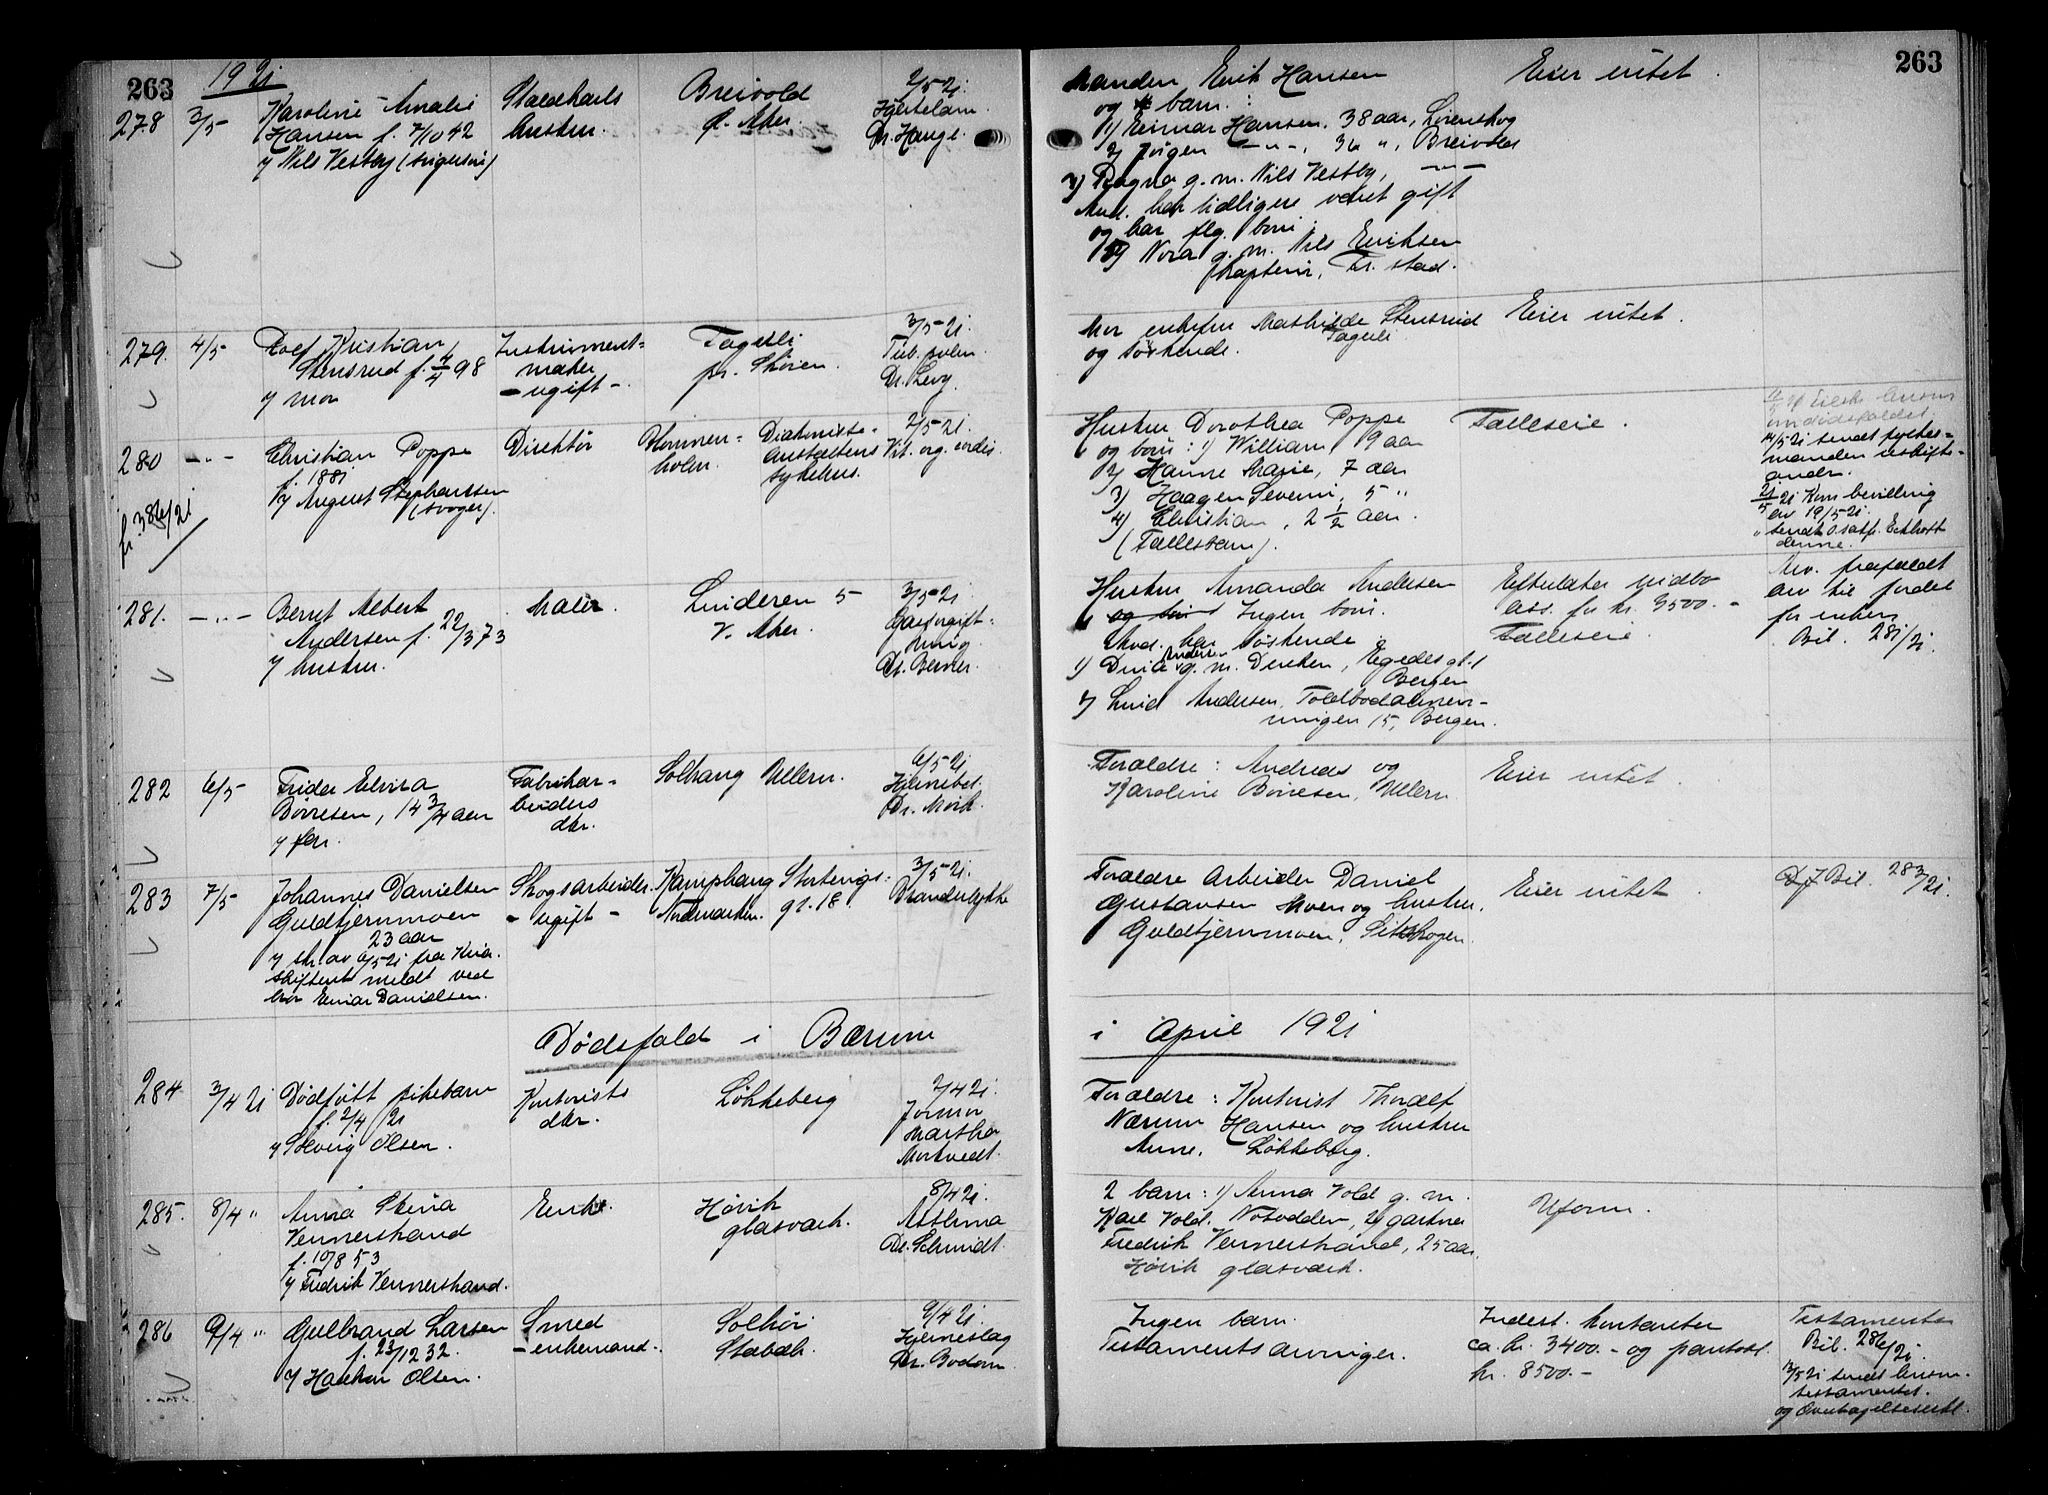 263
1921
278
3/5
Karoline Amalie
Hansen f. 7/10 42
v/ Nils Vestby (svigersøn)
Staldkarls
hustru.
Breivold
Ø. Aker.
2/5-21.
Hjertelam.
Dr. Hauge.
279.
4/5
Rolf Kristian
Stensrud f. 4/4 98
v/ mor
Instrument-
maker
- ugift -
Fagerli
pr. Skøien.
3/5-21.
Tub. pulm.
Dr. Levy.
280
- " -
Christian Poppe
f. 1881
v/ August Stephansen
(svoger).
fr. 386/21
Direktør
Blommen-
holm.
Diakonisse-
anstaltens
sykehus.
2/5-21.
Vit. org. cordis.
281.
- " -
Bernt Albert
Andersen f. 22/3 73
v/ hustru.
Maler.
Linderen 5
V. Aker.
3/5-21
Gasforgift-
ning.
Dr. Berner.
282
6/5
Frida Elvira
Børresen, 14 3/4 aar
v/ far.
Fabrikar-
beiders
dtr.
Solhaug Ullern.
6/5 21
Hjernebet.
Dr. Mørk.
283
7/5
Johannes Danielsen
Guldtjernmoen
23 aar
v/ skr. av 6/5 21 fra Kria.
skifterett meldt ved
bror Einar Danielsen.
Skogsarbeider.
- ugift -
Kamphaug
Nordmarken.
Stortings-
gt. 18.
3/5-21.
Dødsfald i Bærum
284
3/4 21
Dødfødt pikebarn
f. 2/4 21
v/ Solveig Olsen.
Kontorists
dtr.
Løkkeberg
2/4 21.
Jormor
Martha
Mortvedt.
285.
8/4 "
Anna Stina
Vennerstrand
f. 10/8 53
v/ Fredrik Vennerstrand.
Enke.
Høvik
glasværk.
8/4 21.
Asthma
Dr. Schmidt.
286
9/4 "
Gulbrand Larsen
f. 23/12 32.
v/ Haakon Olsen.
Smed
- enkemand -.
Solhøi
Stabæk.
9/4 21.
Hjerneslag
Dr. Bodom.
263
Manden Erik Hansen
og barn:
1) Reimar Hansen. 38 aar, Lørenskog
2) Jørgen - " -, 36 ", Breivold
3) Ragna g. m. Nils Vestby, - " -
Avd. har tidligere været gift
og har flg. barn:
Nora g. m. Nils Eriksen
kaptein, Fr. stad.
Eier intet.
Mor enkefru Mathilde Stensrud
Fagerli
og søskende.
Eier intet.
Hustru Dorothea Poppe
og barn: 1) William, 9 aar
2) Hanne Marie, 7 aar
3) Haagen Severin, 5 "
4) Christian, 2 1/2 aar.
(Fællesbarn).
Fælleseie.
om dødsfaldet.
14/5 21 sendt sysselmanden
21/5 21 Kom bevilling
av 19/5-21.
denne.
Hustru Amanda Andersen
Ingen barn.
Avd. har søskende
1) Dina Andersen g. m. Dencken, Egedes gt. 1
Bergen
2) Lind Andersen, Toldbodalmen-
ningen 15, Bergen.
Efterlater indbo
ass. for kr. 3500.-
Fælleseie.
Arv. frafaldt
arv til fordel
for enken
Bil. 281/21.
Forældre: Andreas og
Karoline Børresen, Ullern
Eier intet.
Forældre Arbeider Daniel
Gustavsen Moen og hustru,
Guldtjernmoen, Sitskogen.
Eier intet.
Df Bil. 283/21.
i April 1921
Forældre: Kontorist Thoralf
Nærum Hansen og hustru
Anne, Løkkeberg.
2 barn: 1) Anna Vold g. m.
Karl Vold. Notodden, 2) gartner
Fredrik Vennerstrand, 25 aar.
Høvik glasværk.
Uform.
Ingen barn.
Testamentsarvinger.
Indest. kontanter
ca. kr. 3400.- og pantobl.
kr. 8500.-
Testamente
Bil. 286/21.
13/5 21 sendt
testamentet.
og Overtagelseserkl.